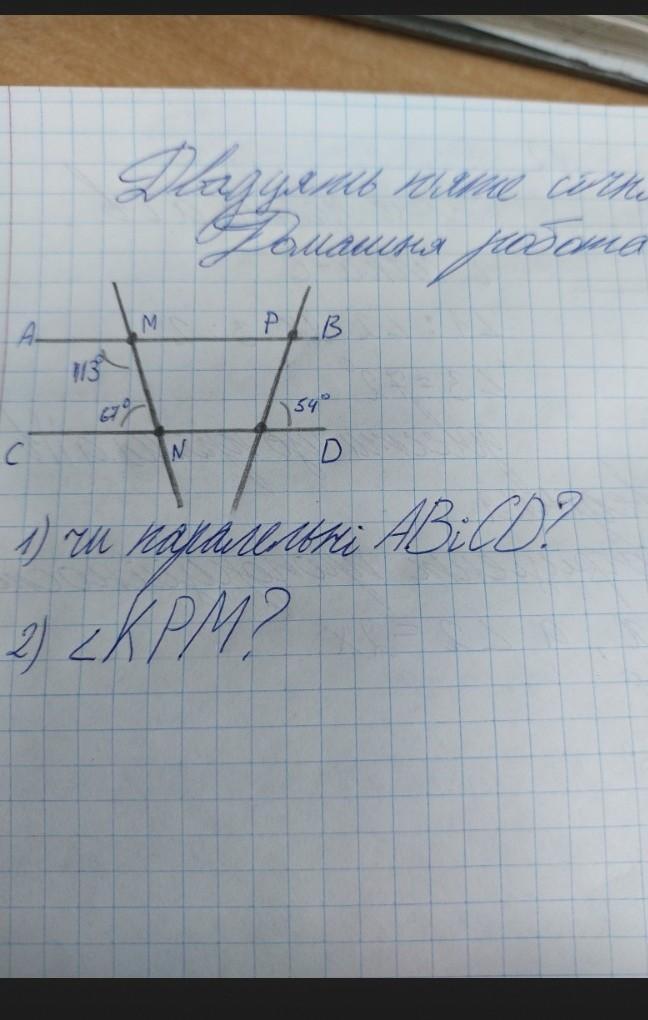 Двадцять п'яте січн
Домашня робота
A M P B
113°
67° 54°
C N D
1) чи паралельні AB i CD?
2) ∠KPM?